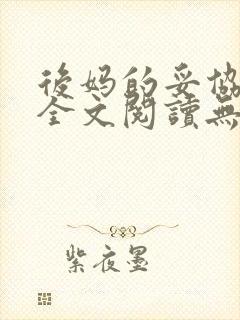 後妈的妥協
全文閱讀無
紫夜墨